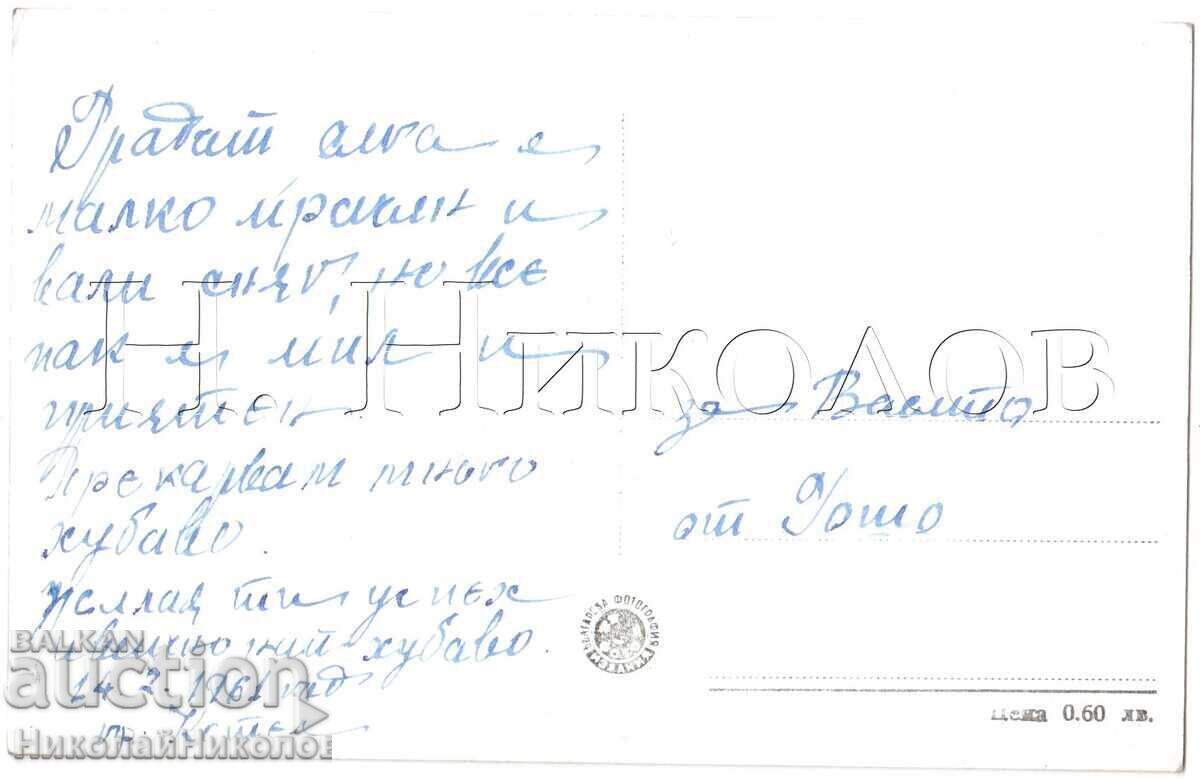 Градът сига е
малко мрачен и
вали сняг, но все
пак е мил и
приятен
Прекарвам много
хубаво.
Желая ти успех
и всичко най-хубаво.
24. 2. 1961 год
гр. Котел
за Васето
от Гошо
БЪЛГАРСКА ФОТОГРАФИЯ
Цена 0.60 лв.
Н. Николов
BALKAN
auction
НиколайНиколов